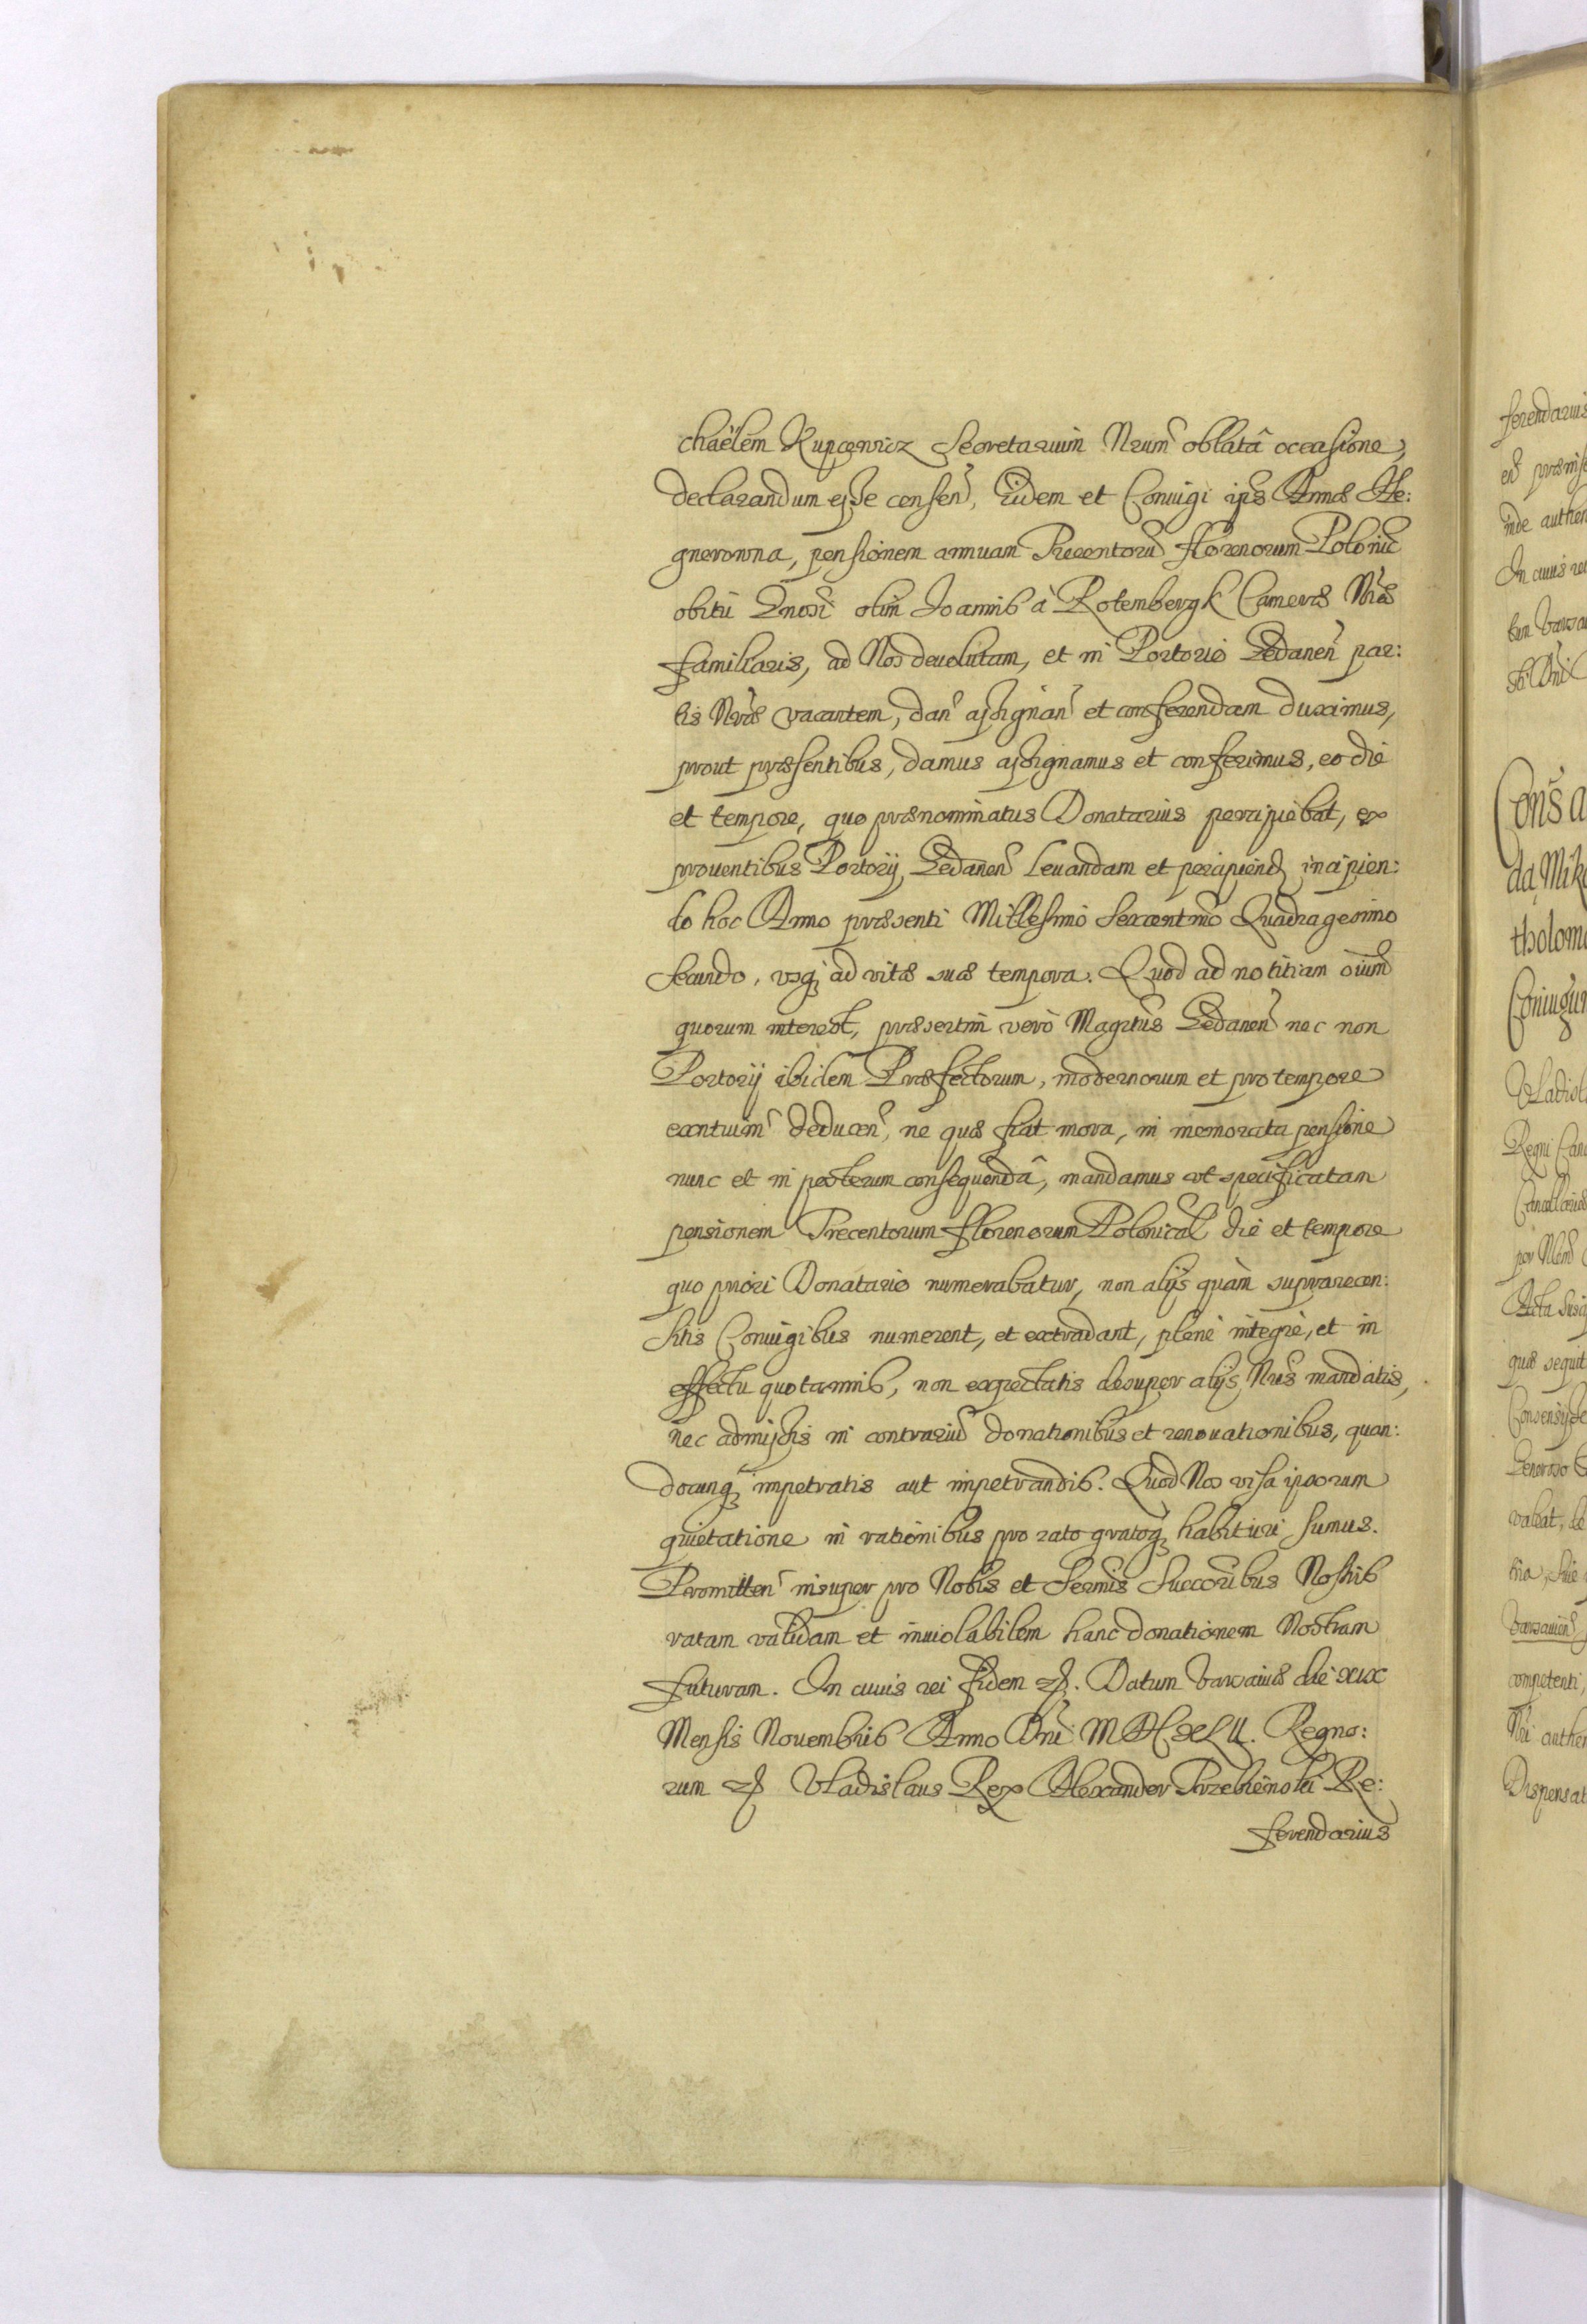 chaëlem Kupcewicz Secretarium Nrum oblatâ occasione,
declarandum esse censen, Eidem et Coniugi ips Annæ He:
gnerowna, pensionem annuam Trecentorū florenorum Polonic
obitū Gnosi olim Joannis à Rotembergk Cameræ Nræ
familiaris, ad Nos deuolutam, et in Portorio Gedanen par:
tis Nræ vacantem, dan assignan et conferendam duximus,
prout præsentibus, damus assignamus et conferimus, eo die
et tempore, quo prænominatus Donatarius percipiebat, ex
prouentibus Portorij Gedanen leuandam et percipiend, incipien:
do hoc Anno præsenti Millesimo Sexcentmo Quadragesimo
secundo, vsq ad vitæ suæ tempora. Quod ad notitiam oium
quorum interest, præsertim verò Magrtus Gedanen nec non
Portorij ibidem Præfectorum, modernorum et pro tempore
exntium deducen, ne quæ fiat mora, in memorata pensione
nunc et in posterum consequendâ, mandamus vt specificatam
pensionem Trecentorum florenorum Polonical die et tempore
quo priori Donatario numerabatur, non alijs quàm suprarecen:
sitis Coniugibus numerent, et extradant, plenè integrè, et in
effectu quotannis, non expectatis desuper alijs Nris mandatis,
nec admissis in contrariū donationibus et renouationibus, quan:
docunq impetratis aut impetrandis. Quod Nos visa ipsorum
quietatione in rationibus pro rato gratoq habituri sumus.
Promitten insuper pro Nobis et Sermis Succoribus Nostris
ratam validam et inuiolabilem hanc donationem Nostram
futuram. In cuius rei fidem etc. Datum Varsauiæ die xxix
Mensis Nouembris Anno Dni MDCXLII. Regno:
rum etc Vladislaus Rex Alexander Trzebienski Re:
ferendarius
ferendarius
inde authen
In cuius rei
Cons a
da Mik
tholom
Coniugum
Vladisl
Regni Can
quæ sequit
Generoso
valeat, de
Varsauien
competenti,
Nri authen
Dispensat